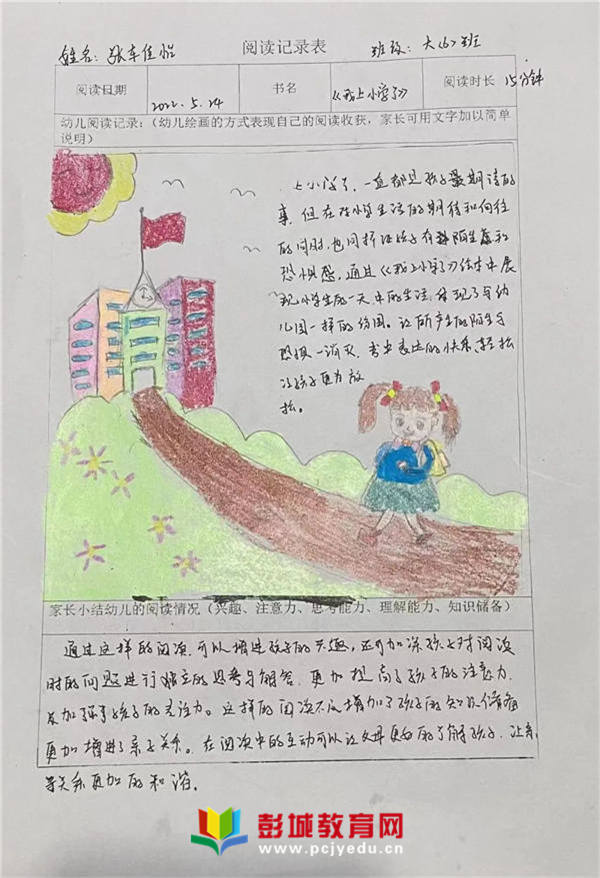 阅读记录表
姓名:张车佳怡 班级:大(6)班
阅读日期 2022.5.24 书名 《我上小学了》 阅读时长 15分钟
幼儿阅读记录:(幼儿绘画的方式表现自己的阅读收获,家长可用文字加以简单
说明)
上小学了,一直都是孩子最期待的
事,但在对小学生活的期待和向往
的同时,也同折让孩子有陌生感和
恐惧感,通过《我上小学了》绘本中展
现小学生的一天中的生活,体现了与幼
儿园一样的氛围。让所产生的陌生与
恐惧一消灭,书中表达的快乐,轻松
让孩子更为放
松。
家长小结幼儿的阅读情况(兴趣、注意力、思考能力、理解能力、知识储备)
通过这样的阅读,可以增进孩子的兴趣,还可加深孩子对阅读
时的问题进行独立的思考与解答,更加提高了孩子的注意力
及加强了孩子的专注力。这样的阅读不仅增加了孩子的知识储备
更加增进了亲子关系。在阅读中的互动可以让父母更好的了解孩子,让亲
子关系更加的和谐。
彭城教育网
www.pcjyedu.cn